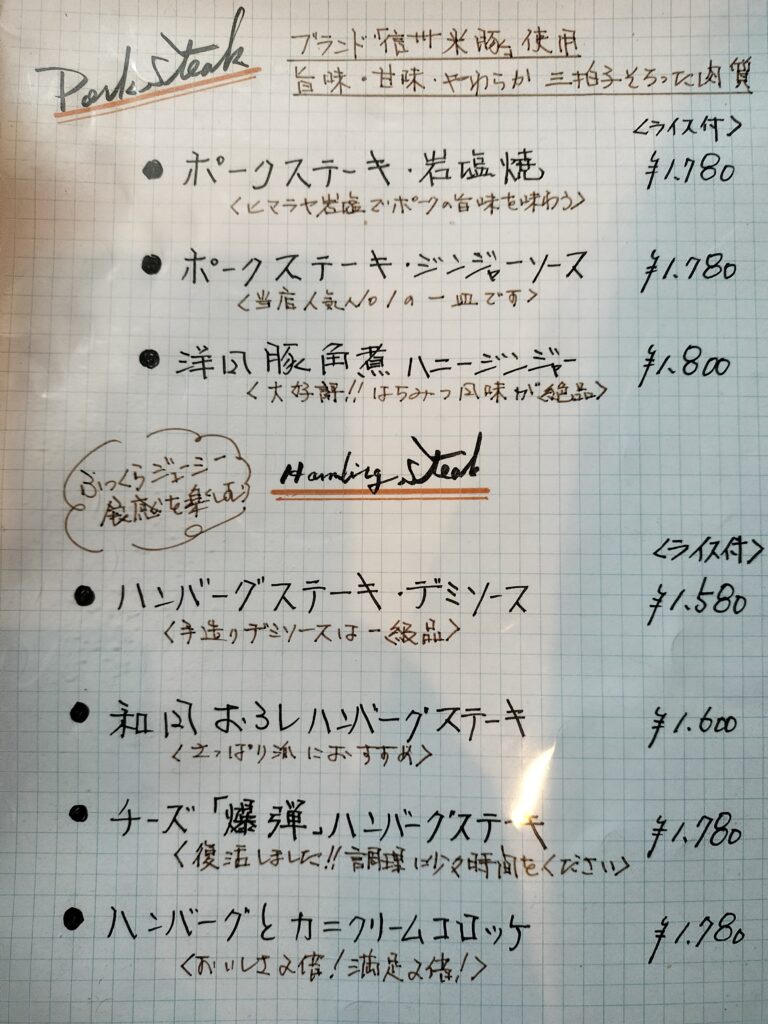 Pork Steak
ブランド「信州米豚」使用
旨味・甘味・やわらか 三拍子そろった肉質
<ライス付>
● ポークステーキ・岩塩焼 ¥1.780
<ヒマラヤ岩塩でポークの旨味を味わう>
● ポークステーキ・ジンジャーソース ¥1.780
<当店人気No1の一皿です>
● 洋風豚角煮ハニージンジャー ¥1.800
<大好評!!はちみつ風味が絶品>
ふっくらジューシー
食感を楽しむ
Hamburg Steak
<ライス付>
● ハンバーグステーキ・デミソース ¥1.580
<手造りデミソースは一級品>
● 和風おろしハンバーグステーキ ¥1.600
<さっぱり派におすすめ>
● チーズ「爆弾」ハンバーグステーキ ¥1.780
<復活しました!!調理に少々時間をください>
● ハンバーグとカニクリームコロッケ ¥1.780
<おいしさ2倍!満足2倍!>